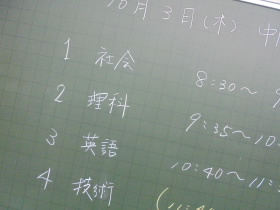 10月3日(木) 中
1 社会 8:30～
2 理科 9:35～10:
3 英語 10:40～11:
4 技術 (11:4